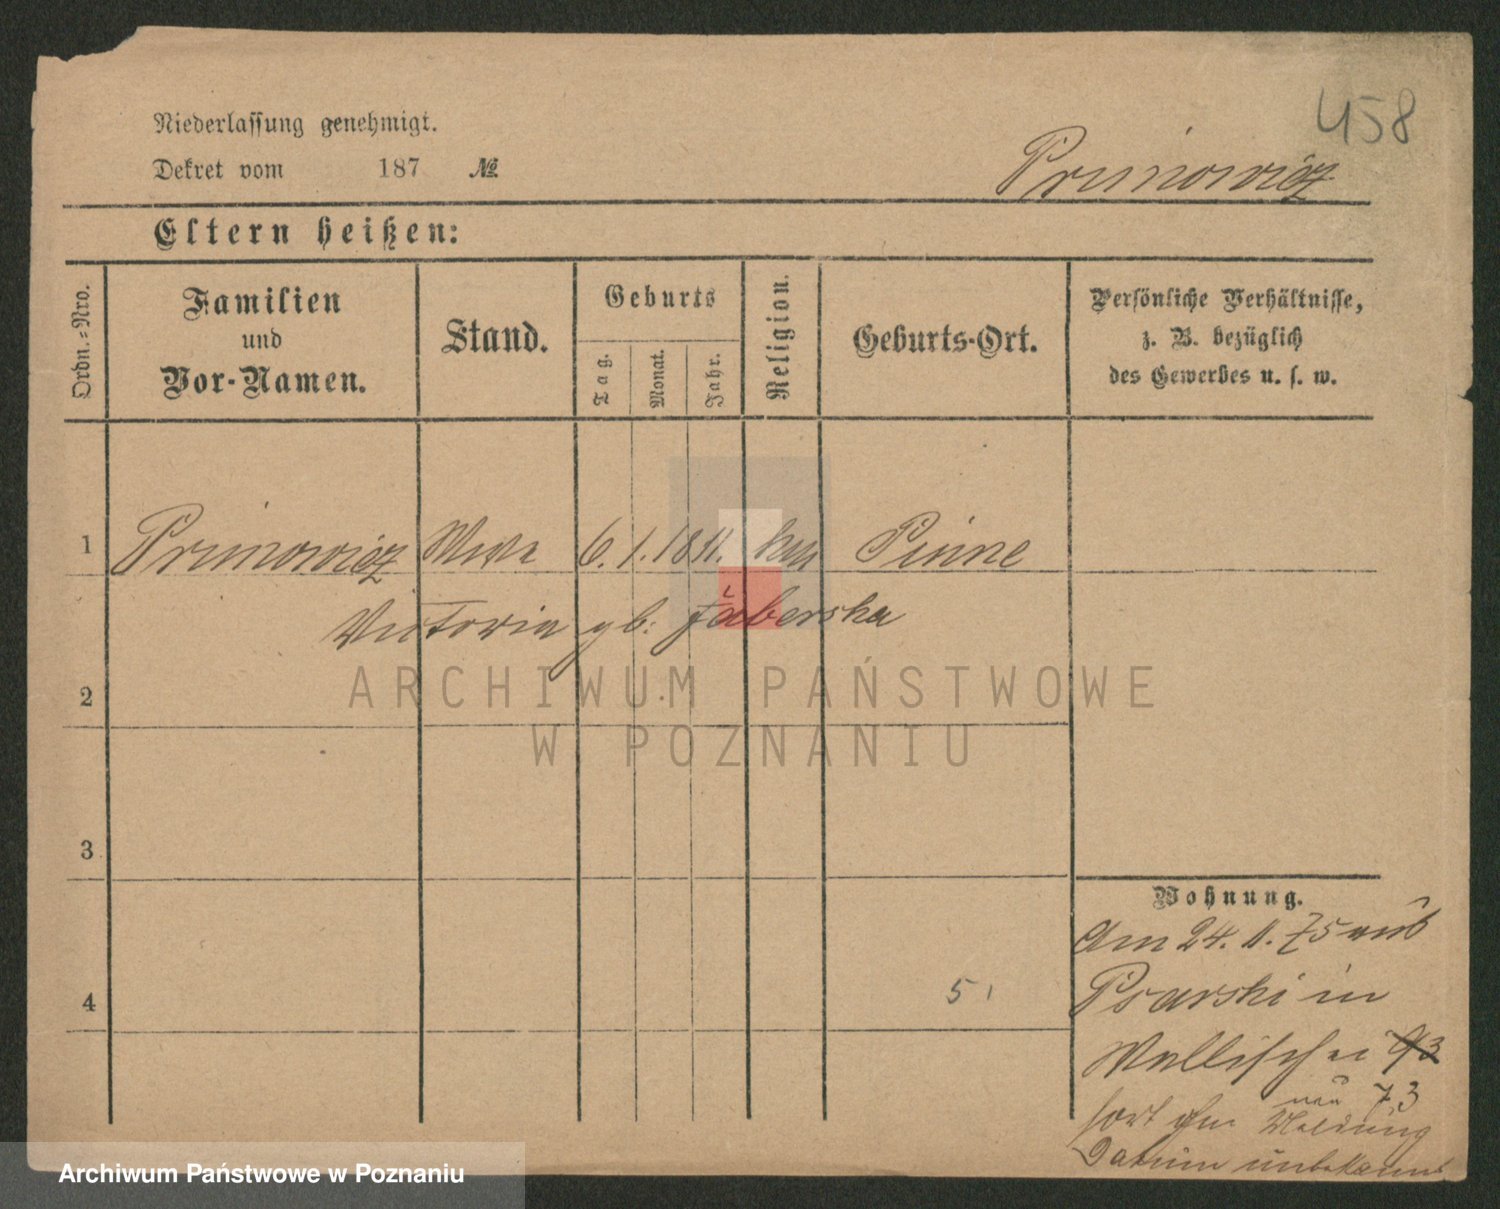 458
Niederlassung genehmigt.
Dekret vom 187 №
Primowicz
Eltern heißen:
Ordn.-Nro.
Familien
und
Vor-Namen.
Stand.
Geburts
Tag.
Monat.
Jahr.
Religion.
Geburts-Ort.
Persönliche Verhältnisse,
z. B. bezüglich
des Gewerbes u. s. w.
1 Primowicz Wwe 6. 1. 1811. kat Pinne
Victoria gb: Faberska
2
3
4
5
ARCHIWUM PAŃSTWOWE
W POZNANIU
Wohnung.
Am 24. 11. 75 aus
Psarski in
Wallischei 93
neu 73
fort ohne Meldung
Datum unbekannt
Archiwum Państwowe w Poznaniu